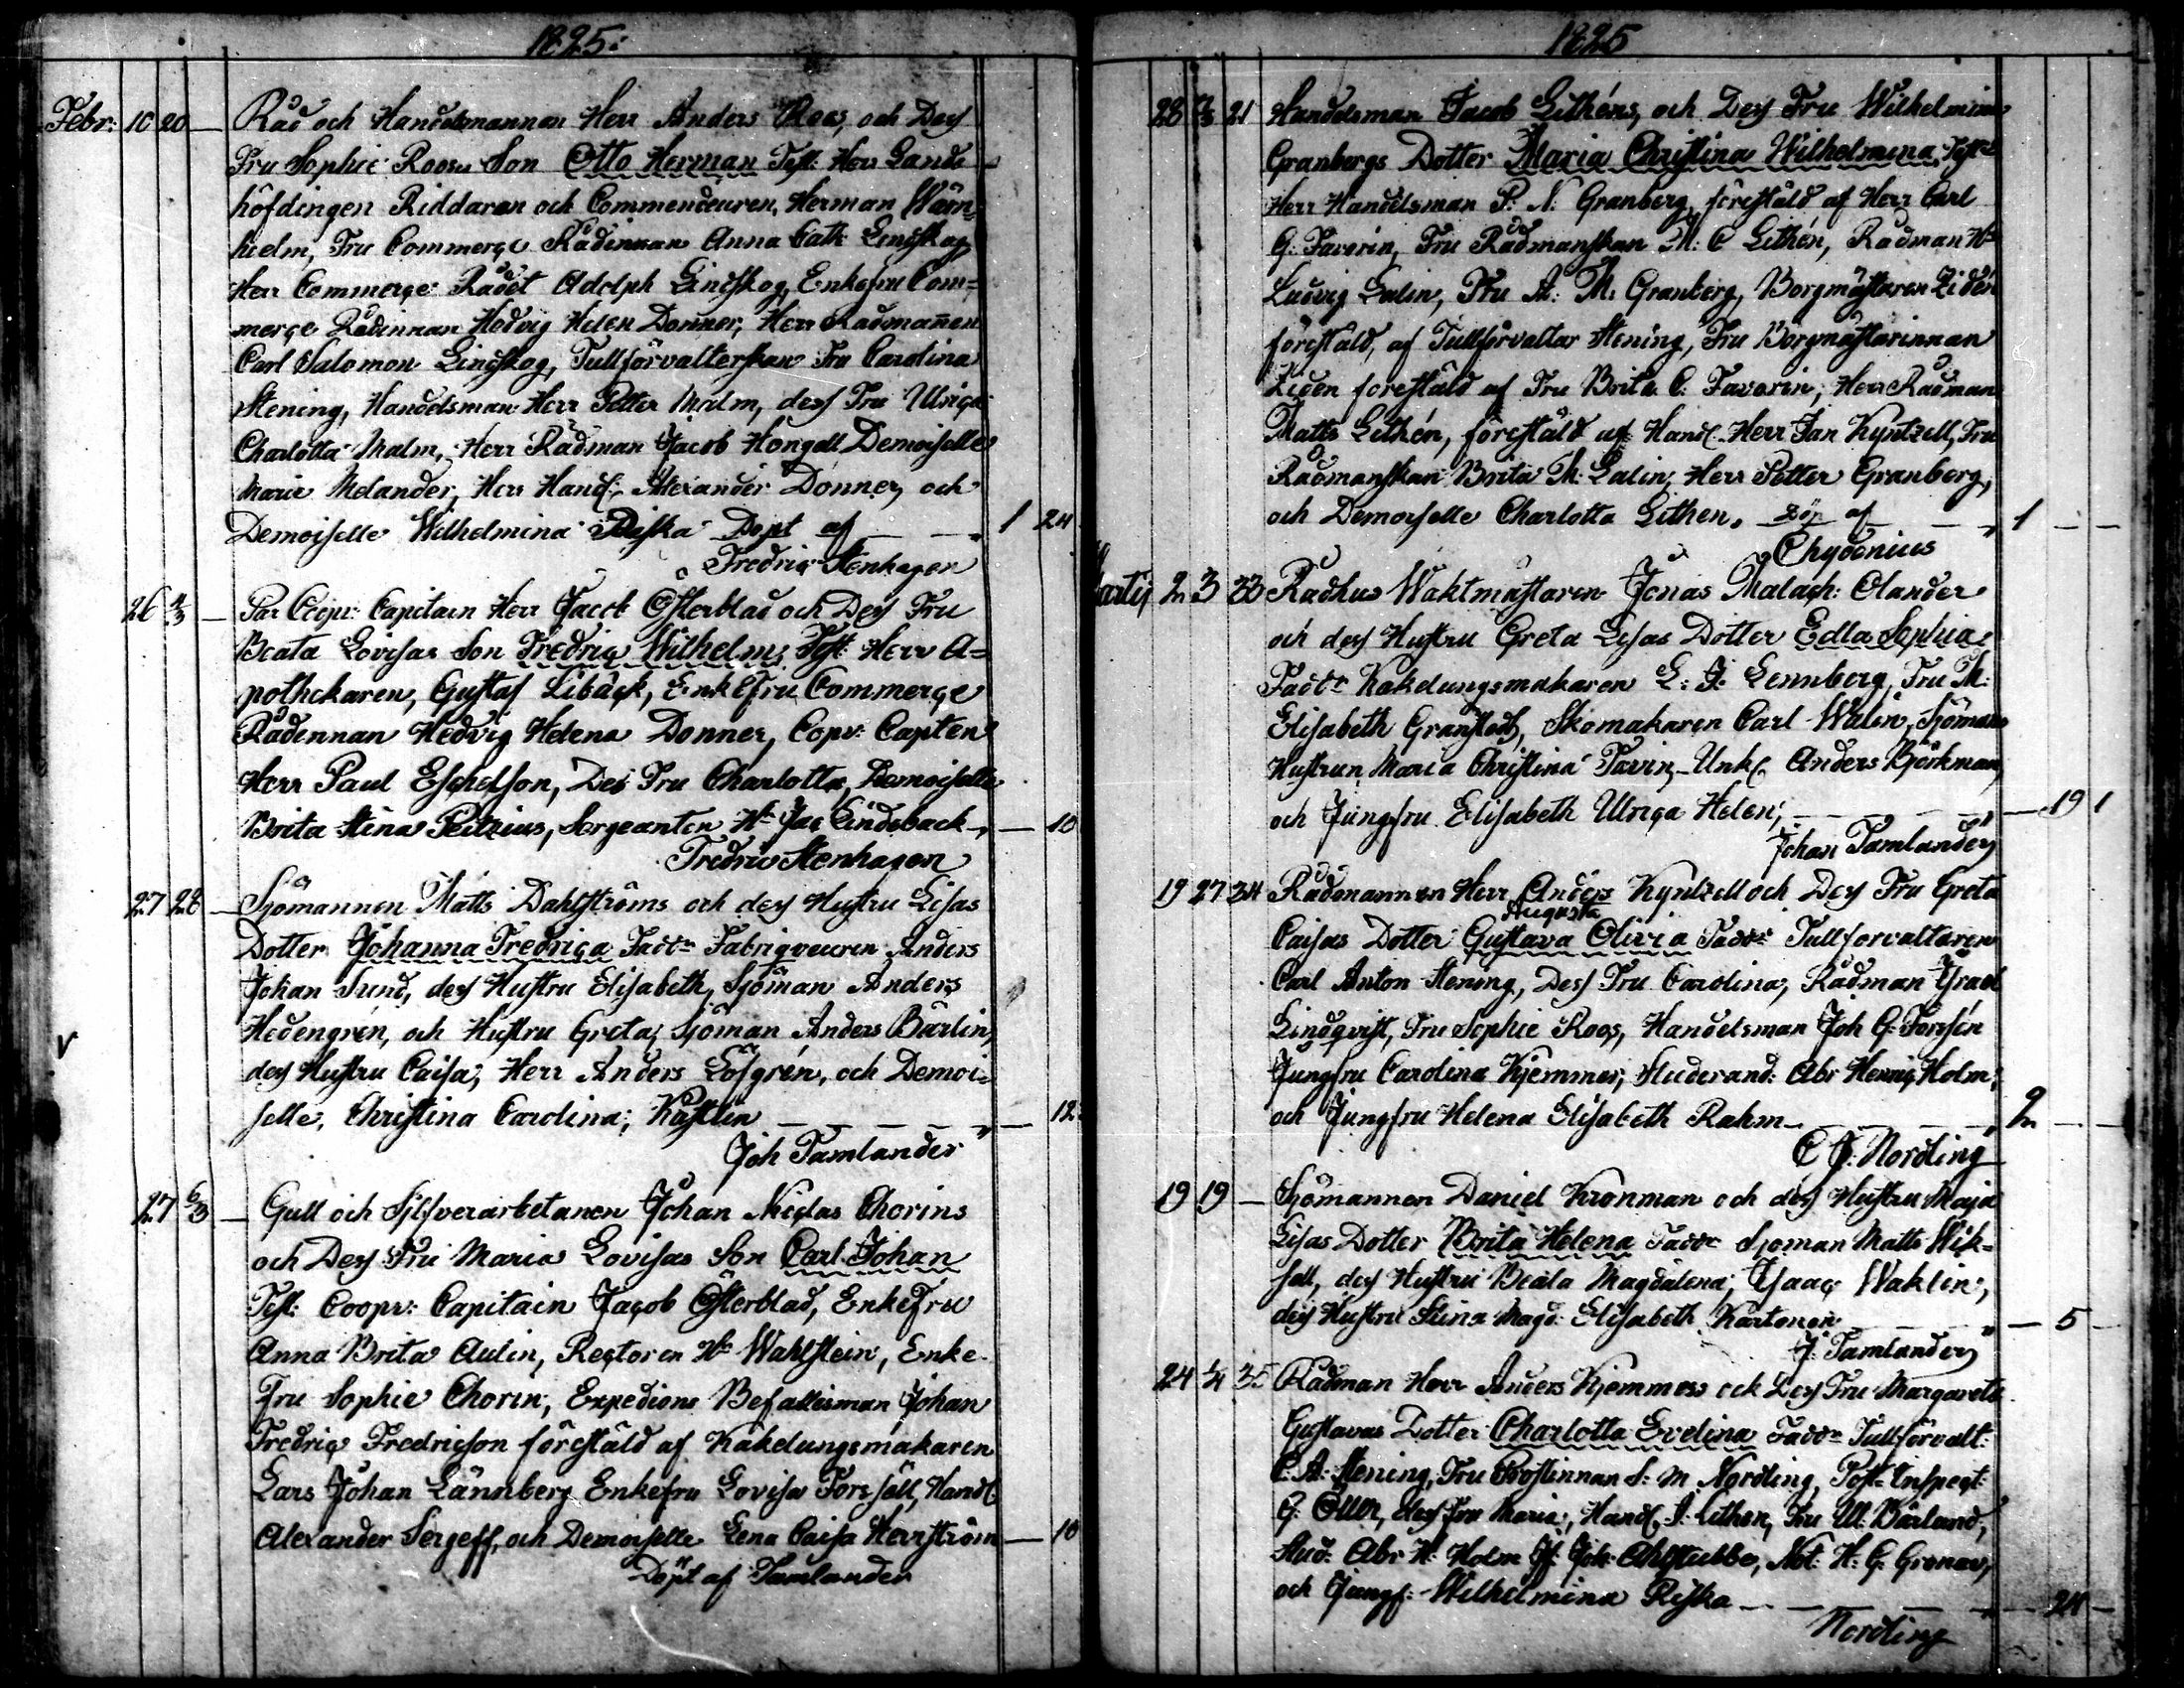 1825:
Febr: 10 20 — Råd och Handelsmannen Herr Anders Roos, och Dess
Fru Sophie Roosu Son Otto Herman Test: Herr Lands
höfdingen Riddaren och Commendeuren, Herman Wärn
hielm, Fru Commerce Rådinnan Anna Cath: Lindskog,
Herr Commerce Rådet Adolph Lindskog, Enkefru Com=
merce Rådinnan Hedvig Helen Donner, Herr Rådmannen
Carl Salomon Lindskog, Tullförvalterskan Fru Carolina
Stening, Handelsman Herr Petter Malm, dess Fru Ulrica
Charlotta Malm, Herr Rådman Jacob Hongell Demoiselle
Maria Melander, Herr Handl: Alexander Donner, och
Demoiselle Wilhelmina Riska Döpt af — — „ 1 24
Fredric Stenhagen
26 4/3 — Par Coopv: Capitain Herr Jacob Österblad och Dess Fru
Beata Lovisas Son Fredric Wilhelm; Test: Herr A=
pothekaren, Gustaf Libäck, Enkefru Commerce
Rådennan Hedvig Helena Donner, Copv: Capten
Herr Paul Eschelson, Des Fru Charlotta, Demoiselle
Brita Stina Peitzius, Sergeanten Hr Jac Lindeback — 10
Fredric Stenhagen
27 28 — Sjömannen Matts Dahlströms och dess Hustru Lisas
Dotter Johanna Fredrica Faddr Fabriqveuren Anders
Johan Sund, dess Hustru Elisabeth, Sjöman Anders
Hedengrén, och Hustru Greta, Sjöman Anders Bürlin,
V dess Hustru Caisa, Herr Anders Löfgrén, och Demoi=
selle, Christina Carolina; Kastlin — — — „ — 12
Joh Tamlander
27 6/3 — Gull och Silfverarbetaren Johan Niclas Chorins
och Dess Fru Maria Lovisas Son Carl Johan
Test: Coopv: Capitain Jacob Österblad, Enkefru
Anna Brita Aulin, Rectoren Hr Wahlstein, Enke
Fru Sophie Chorin, Expedions Befallnisman Johan
Fredric Fredricson föreställd af Kakelungsmakaren
Lars Johan Lännberg Enkefru Lovisa Forssell, Handl
Alexander Sergeff, och Demoiselle Lena Caisa Herrström — 10
Döpt af Tamlander
1825
28 21 Handelsman Jacob Lithéns, och Dess Fru Wilhelmina
Granbergs Dotter Maria Christina Wilhelmina, Test:
Herr Handelsman P: N: Granberg föreställd af Herr Carl
G: Favorin, Fru Rådmanskan M: C Lithén, Rådman Hr
Ludvig Galin, Fru A: M: Granberg, Borgmästaren Lidén
föreställd, af Tullförvaltar Stening, Fru Borgmästarinnan
Liden foreställd af Fru Brita C: Favorin, Herr Rådman
Matts Lithén, föreställd af Handl. Herr Jan Kyntzell, Fru
Rådmanskan Brita M: Galin, Herr Petter Granberg,
och Demoiselle Charlotta Lithen, döp af — — „ 1 — —
Chydenius
Martij 2 3 33 Rådhus Waktmästaren Jonas Malach: Olander
och dess Hustru Greta Lisas Dotter Edla Sophia
Faddr Kakelungsmakaren L: J: Lennberg, Fru M:
Elisabeth Granstedt, Skomakaren Carl Walin, Sjömans
Hustrun, Maria Christina Favrin, Unkl. Anders Björkman,
och Jungfru Elisabeth Ulrica Helen; — — — „ — 19 1
Johan Tamlander
19 27 34 Rådmannen Herr Anders Kyntzell och Dess Fru Greta
Augusta
Caisas Dotter Gustava Olivia Faddr Tullforvaltaren
Carl Anton Stening, Dess Fru Carolina, Rådman Israel
Lindqvist, Fru Sophie Roos, Handelsman Joh G: Forssén
Jungfru Carolina Kjemmer, Studerand: Abr Hening Holm,
och Jungfru Helena Elisabeth Rahm — — — „ 2 — —
C J: Nordling
19 19 — Sjömannen Daniel Kronman och dess Hustru Maja
Lisas Dotter Brita Helena Faddr Sjoman Matts Wik=
sell, dess Hustru Beata Magdalena, Isaac Waklin,
des Hustru Stina Magd: Elisabeth Kartonen — — „ — 5 —
J: Tamlander
24 1/4 35 Rådman Herr Anders Kjemmers och Dess Fru Margareta
Gustavas Dotter Charlotta Evelina Faddr Tullförvalt:
C A: Stening, Fru Prostinnan S: M Nordling, Post Inspect
G: Öller, dess Fru Maria, Handl. J: Lithen, Fru Ul: Bärlund,
Stud: Abr H: Holm Jf: Joh: Ahlstubbe, Not: H: G: Gronov,
och Jungf: Wilhelmina Riska — — — „ — 24 —
Nordling